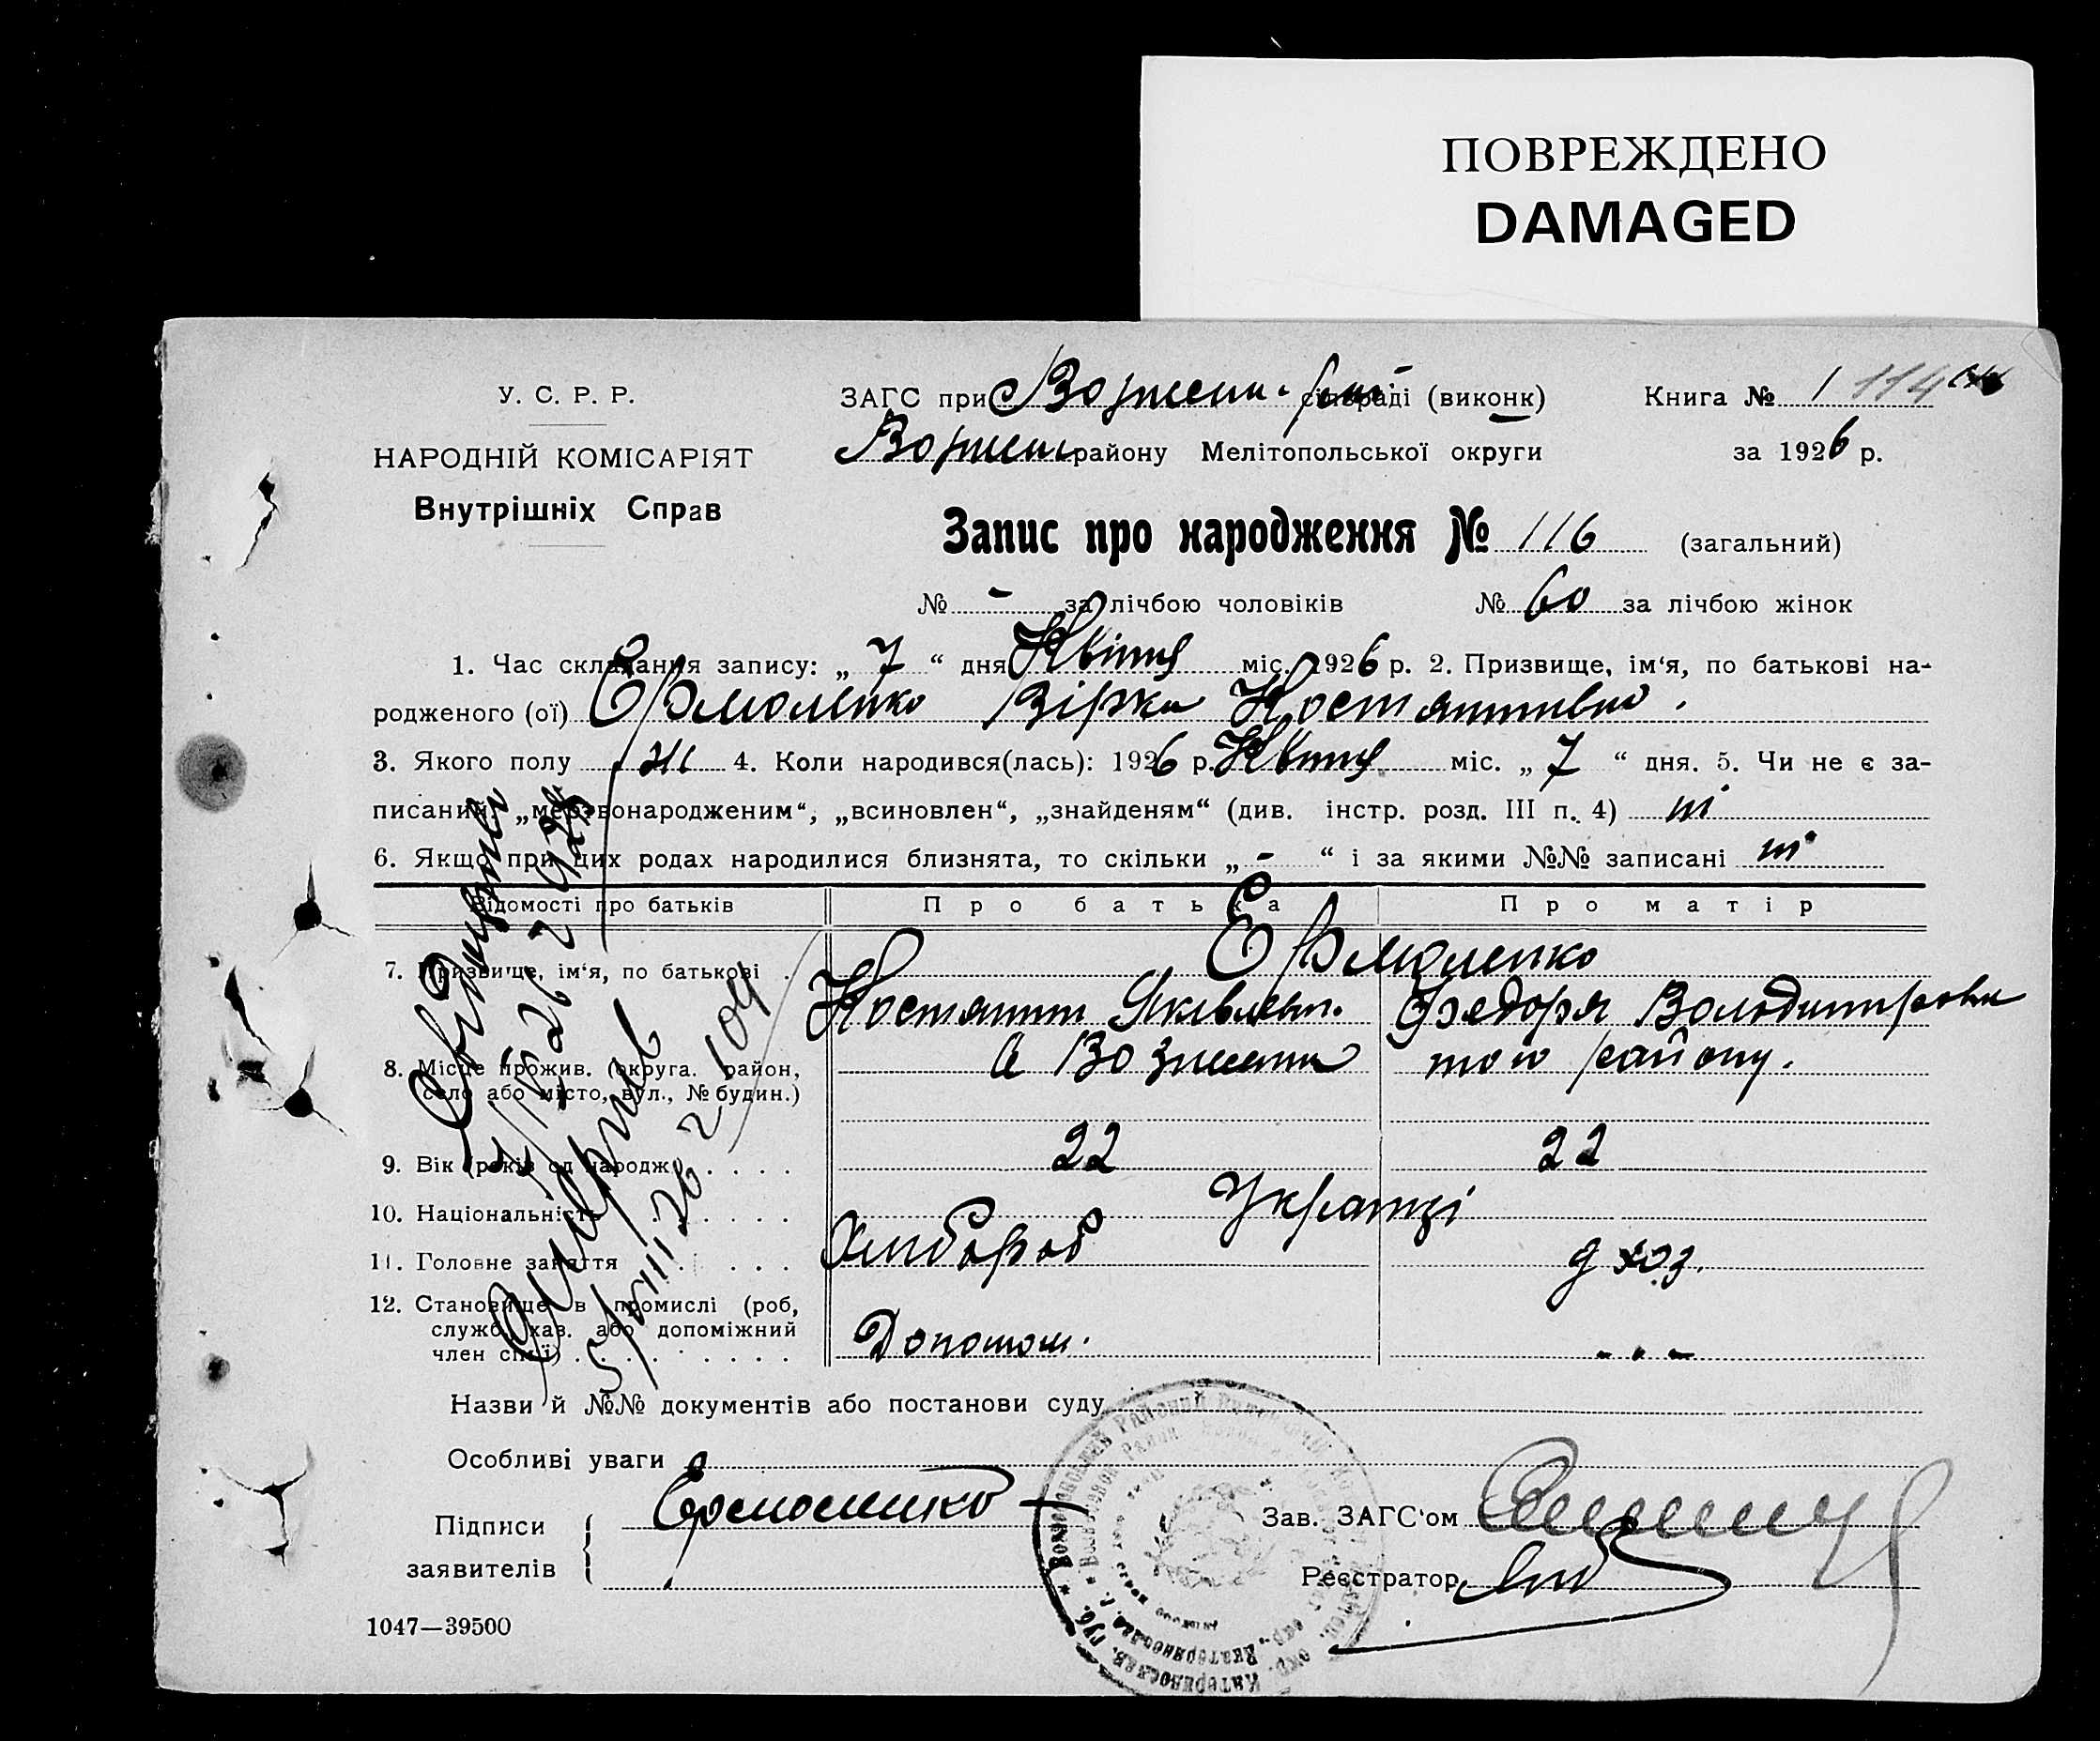 ПОВРЕЖДЕНО
DAMAGED
У. С. Р. Р.
НАРОДНІЙ КОМІСАРІЯТ
Внутрішніх Справ
ЗАГС при сільраді (виконк)
району Мелітопольської округи
Книга № 1 114
за 1926 р.
Запис про народження № 116 (загальний)
№ - за лічбою чоловіків № 60 за лічбою жінок
1. Час складання запису: „ 7 “ дня Квітня міс. 1926 р. 2. Призвище, ім‘я, по батькові на-
родженого (ої) Єрмоленко Вірка Костянтинівна.
3. Якого полу ж 4. Коли народився(лась): 1926 р. Квітня міс. „ 7 “ дня. 5. Чи не є за-
писаний: „мертвонародженим“, „всиновлен“, „знайденям“ (див. інстр. розд. III п. 4) ні
6. Якщо при цих родах народилися близнята, то скільки „ - “ і за якими №№ записані ні
Відомості про батьків Про батька Про матір
7. Призвище, ім‘я, по батькові Єрмоленко
Костянтин Яковлев. Федора Володимировна
8. Місце прожив. (округа. район, с Вознесенка того району.
село або місто, вул., № будин.)
9. Вік (років од народж.) 22 22
10. Національність Українці
11. Головне заняття Хлібороб д хоз.
12. Становище в промислі (роб,
служб. хаз. або допоміжний
член сім‘ї) Допомож. - . -
Назви й №№ документів або постанови суду
Особливі уваги
Підписи
заявителів
Ермоленко
Зав. ЗАГС‘ом
Реєстратор
1047—39500